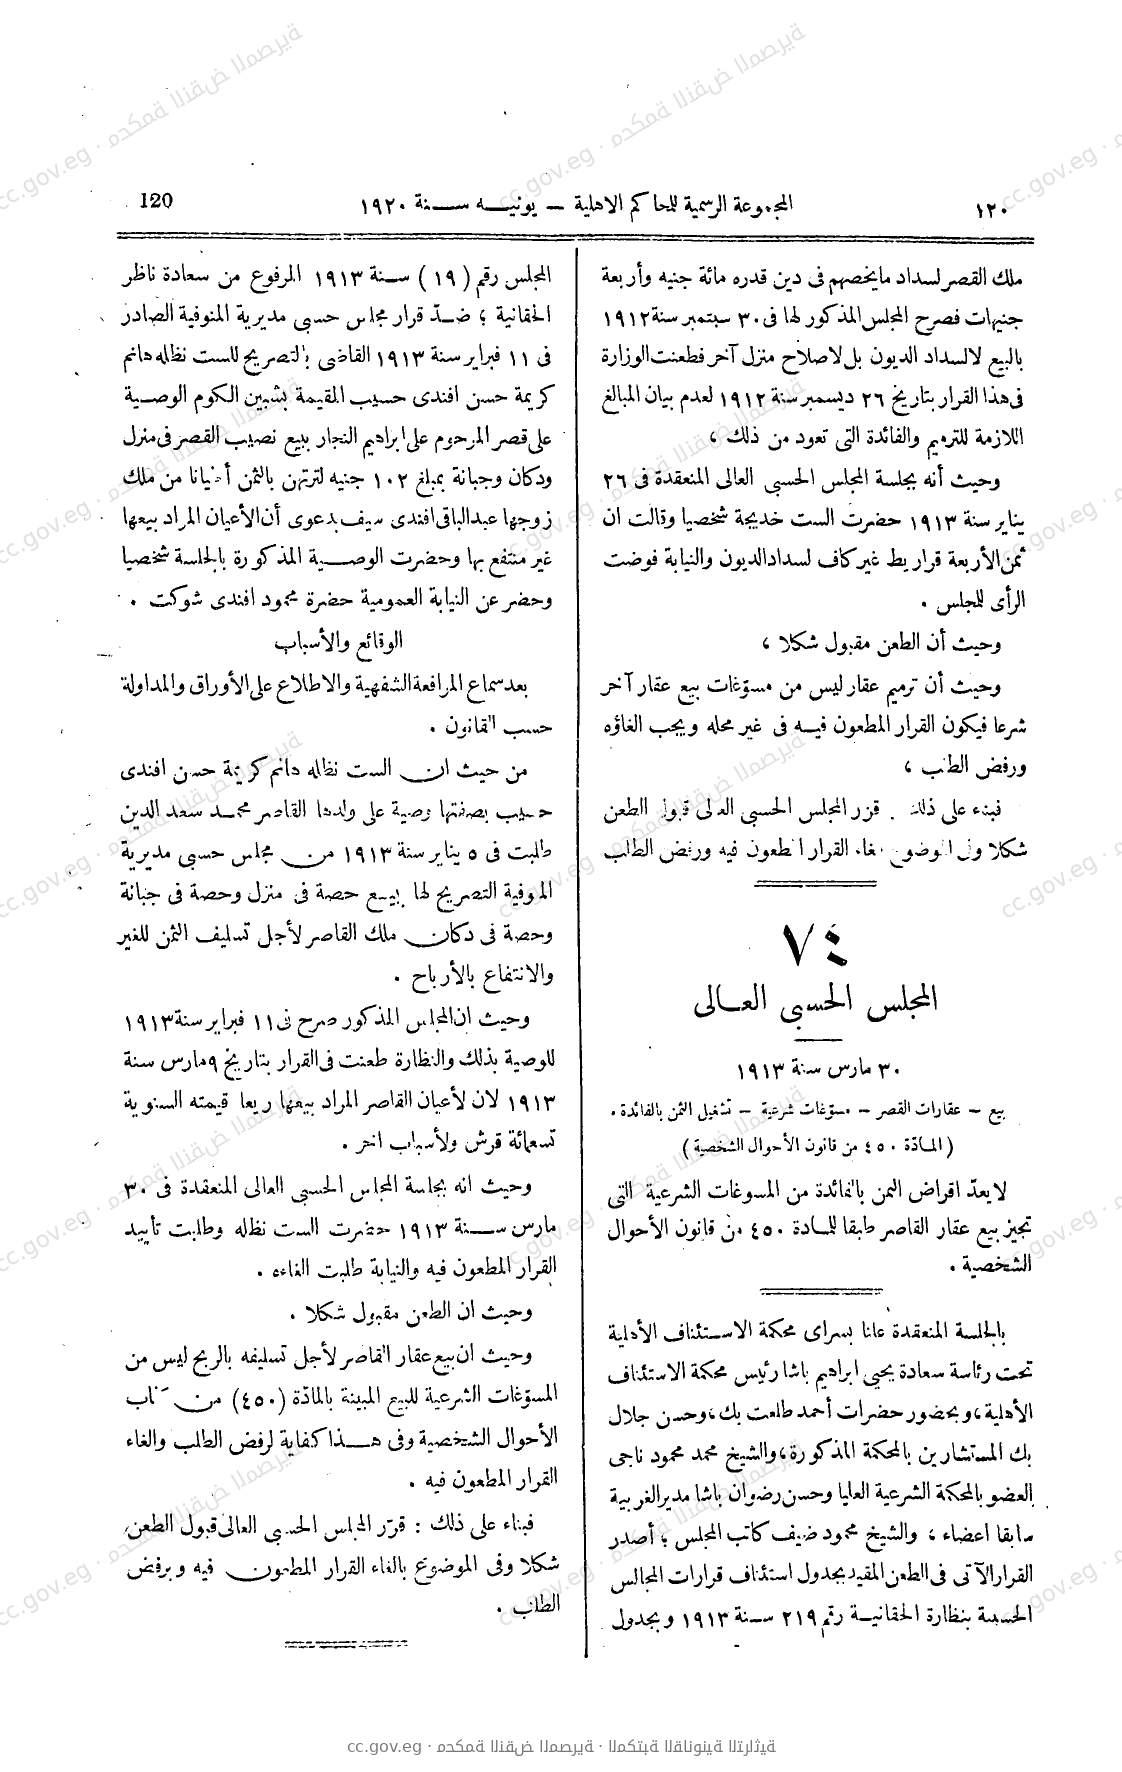 ١٢٠
المجموعة الرسمية للمحاكم الاهلية – يونيــه ســنة ١٩٢٠
120
ملك القصر لسداد مايخصهم فى دين قدره مائة جنيه وأربعة
جنيهات فصرح المجلس المذكور لها فى ٣٠ سبتمبر سنة ١٩١٢
بالبيع لالسداد الديون بل لاصلاح منزل آخر فطعنت الوزارة
فى هذا القرار بتاريخ ٢٦ ديسمبر سنة ١٩١٢ لعدم بيان المبالغ
اللازمة للترميم والفائدة التى تعود من ذلك ،
وحيث أنه بجلسة المجلس الحسبى العالى المنعقدة فى ٢٦
يناير سنة ١٩١٣ حضرت الست خديجة شخصيا وقالت ان
ثمن الأربعة قراريط غير كاف لسداد الديون والنيابة فوضت
الرأى للمجلس .
وحيث أن الطعن مقبول شكلا ،
وحيث أن ترميم عقار ليس من مسوّغات بيع عقار آخر
شرعا فيكون القرار المطعون فيــه فى غير محله ويجب الغاؤه
ورفض الطلب ،
فبناء على ذلك . قرر المجلس الحسبى العالى قبول الطعن
شكلا وفى الموضوع بغاء القرار المطعون فيه ورفض الطلب
٧٤
المجلس الحسبى العــالى
٣٠ مارس سنة ١٩١٣
بيع – عقارات القصر – مسوّغات شرعية – تشغيل الثمن بالفائدة .
( المــادّة ٤٥٠ من قانون الأحوال الشخصية )
لا يعدّ اقراض الثمن بالفائدة من المسوغات الشرعية التى
تجيز بيع عقار القاصر طبقا للمــادة ٤٥٠ من قانون الأحوال
الشخصية .
بالجلسة المنعقدة علنا بسراى محكمة الاستئناف الأهلية
تحت رئاسة سعادة يحيى ابراهيم باشا رئيس محكمة الاستئناف
الأهلية ، وبحضور حضرات أحمد طلعت بك ، وحسن جلال
بك المستشارين بالمحكمة المذكورة ، والشيخ محمد محمود ناجى
العضو بالمحكمة الشرعية العليا وحسن رضوان باشا مدير الغربية
سابقا اعضاء ، والشيخ محمود ضيف كاتب المجلس ؛ أصدر
القرار الآتى فى الطعن المقيد بجدول استئناف قرارات المجالس
الحسبية بنظارة الحقانيــة رقم ٢١٩ ســنة ١٩١٣ وبجدول
المجلس رقم ( ١٩ ) ســنة ١٩١٣ المرفوع من سعادة ناظر
الحقانية ؛ ضــدّ قرار مجلس حسبى مديرية المنوفية الصادر
فى ١١ فبراير سنة ١٩١٣ القاضى بالتصريح للست نظله هانم
كريمة حسن افندى حسيب المقيمة بشبين الكوم الوصــية
على قصر المرحوم على ابراهيم النجار ببيع نصيب القصر فى منزل
ودكان وجبانة بمبلغ ١٠٢ جنيه لترتهن بالثمن أطيانا من ملك
زوجها عبد الباقى افندى سيف بدعوى أن الأعيان المراد بيعها
غير منتفع بها وحضرت الوصــية المذكورة بالجلسة شخصيا
وحضر عن النيابة العمومية حضرة محمود افندى شوكت .
الوقائع والأسباب
بعد سماع المرافعة الشفهية والاطلاع على الأوراق والمداولة
حسب القانون .
من حيث ان الست نظله هانم كريمة حسن افندى
حسيب بصفتها وصية على ولدها القاصر محمــد سعد الدين
طلبت فى ٥ يناير سنة ١٩١٣ من مجلس حسبى مديرية
الموفية التصريح لها ببيع حصة فى منزل وحصة فى جبانة
وحصة فى دكان ملك القاصر لأجل تسليف الثمن للغير
والانتفاع بالأرباح .
وحيث ان المجلس المذكور صرح فى ١١ فبراير سنة ١٩١٣
للوصية بذلك والنظارة طعنت فى القرار بتاريخ ٩ مارس سنة
١٩١٣ لان لأعيان القاصر المراد بيعها ريعا قيمته السنوية
تسعمائة قرش ولأسباب اخر .
وحيث انه بجلسة المجلس الحسبى العالى المنعقدة فى ٣٠
مارس ســنة ١٩١٣ حضرت الست نظله وطلبت تأييد
القرار المطعون فيه والنيابة طلبت الغاءه .
وحيث ان الطعن مقبول شكلا .
وحيث ان بيع عقار القاصر لأجل تسليفه بالربح ليس من
المسوّغات الشرعية للبيع المبينة بالمادّة (٤٥٠) من كتاب
الأحوال الشخصية وفى هــذا كفاية لرفض الطلب والغاء
القرار المطعون فيه .
فبناء على ذلك : قرّر المجلس الحسبى العالى قبول الطعن
شكلا وفى الموضوع بالغاء القرار المطعون فيه وبرفض
الطلب .
cc.gov.eg · محكمة النقض المصرية · المكتبة القانونية التراثية